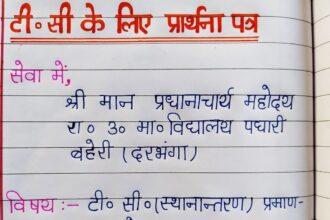 टी॰ सी के लिए प्रार्थना पत्र
सेवा में,
श्री मान प्रधानाचार्य महोदय
रा॰ उ॰ मा॰ विद्यालय पघारी
बहेरी (दरभंगा)
विषय :- टी॰ सी॰ (स्थानान्तरण) प्रमाण-